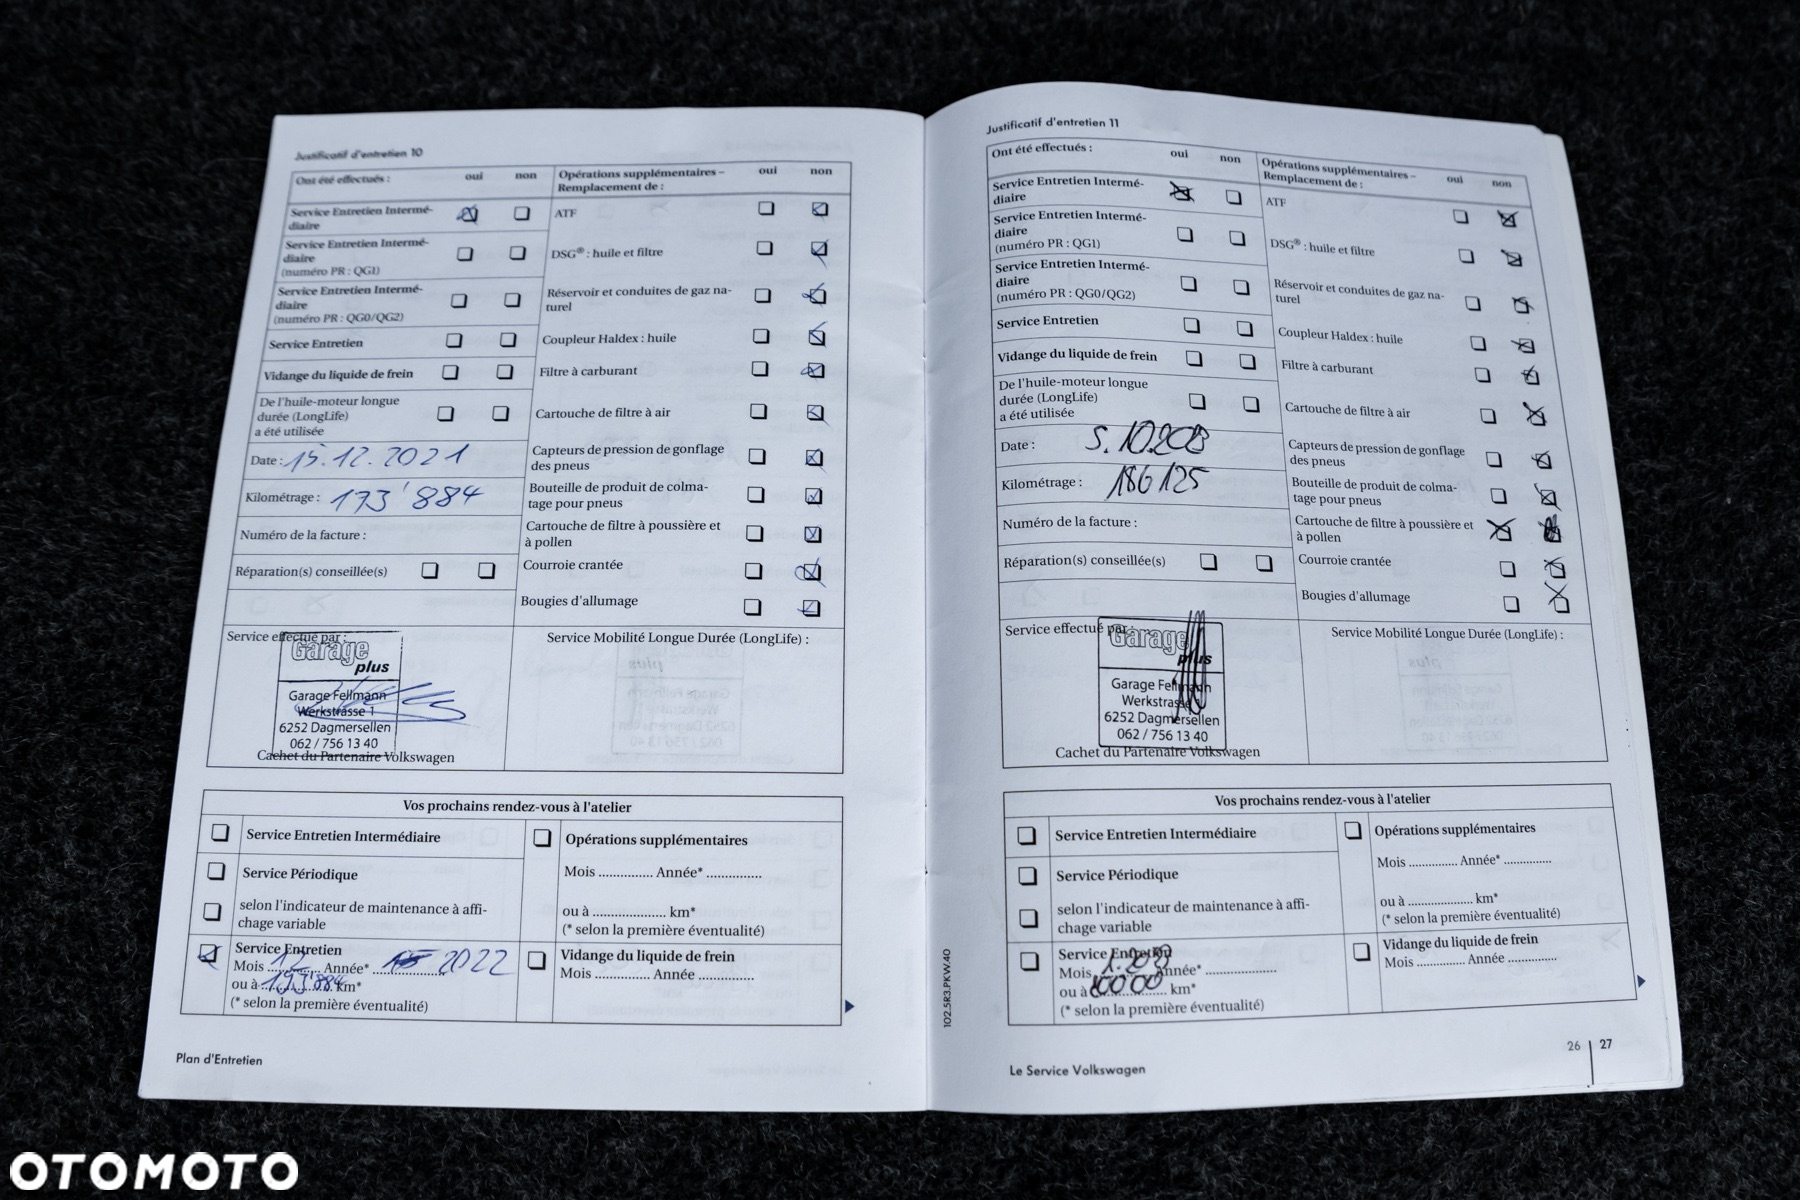 Justificatif d'entretien 10
Ont été effectués :
oui
non
Opérations supplémentaires –
Remplacement de :
oui
non
Service Entretien Intermé-
diaire
ATF
Service Entretien Intermé-
diaire
(numéro PR : QG1)
DSG® : huile et filtre
Service Entretien Intermé-
diaire
(numéro PR : QG0/QG2)
Réservoir et conduites de gaz na-
turel
Service Entretien
Coupleur Haldex : huile
Vidange du liquide de frein
Filtre à carburant
De l'huile-moteur longue
durée (LongLife)
a été utilisée
Cartouche de filtre à air
Date : 15.12.2021
Capteurs de pression de gonflage
des pneus
Kilométrage : 173'884
Bouteille de produit de colma-
tage pour pneus
Numéro de la facture :
Cartouche de filtre à poussière et
à pollen
Réparation(s) conseillée(s)
Courroie crantée
Bougies d'allumage
Service effectué par :
Service Mobilité Longue Durée (LongLife) :
Garage
plus
Garage Fellmann
Werkstrasse 1
6252 Dagmersellen
062 / 756 13 40
Cachet du Partenaire Volkswagen
Vos prochains rendez-vous à l'atelier
Service Entretien Intermédiaire
Opérations supplémentaires
Mois .............. Année* ..............
Service Périodique
selon l'indicateur de maintenance à affi-
chage variable
ou à ................... km*
(* selon la première éventualité)
Service Entretien
Mois 12 Année* 2022
ou à 193'884 km*
(* selon la première éventualité)
Vidange du liquide de frein
Mois .............. Année ..............
Plan d'Entretien
Justificatif d'entretien 11
Ont été effectués :
oui
non
Opérations supplémentaires –
Remplacement de :
oui
non
Service Entretien Intermé-
diaire
ATF
Service Entretien Intermé-
diaire
(numéro PR : QG1)
DSG® : huile et filtre
Service Entretien Intermé-
diaire
(numéro PR : QG0/QG2)
Réservoir et conduites de gaz na-
turel
Service Entretien
Coupleur Haldex : huile
Vidange du liquide de frein
Filtre à carburant
De l'huile-moteur longue
durée (LongLife)
a été utilisée
Cartouche de filtre à air
Date : 5.10.
Capteurs de pression de gonflage
des pneus
Kilométrage : 186125
Bouteille de produit de colma-
tage pour pneus
Numéro de la facture :
Cartouche de filtre à poussière et
à pollen
Réparation(s) conseillée(s)
Courroie crantée
Bougies d'allumage
Service effectué par
Service Mobilité Longue Durée (LongLife) :
Garage
plus
Garage Fellmann
Werkstrasse
6252 Dagmersellen
062 / 756 13 40
Cachet du Partenaire Volkswagen
Vos prochains rendez-vous à l'atelier
Service Entretien Intermédiaire
Opérations supplémentaires
Mois .............. Année* ..............
Service Périodique
selon l'indicateur de maintenance à affi-
chage variable
ou à ................... km*
(* selon la première éventualité)
Service Entretien
Mois Année* ..................
ou à km*
(* selon la première éventualité)
Vidange du liquide de frein
Mois .............. Année ..............
102.5R3.PKW.40
Le Service Volkswagen
26 | 27
OTOMOTO